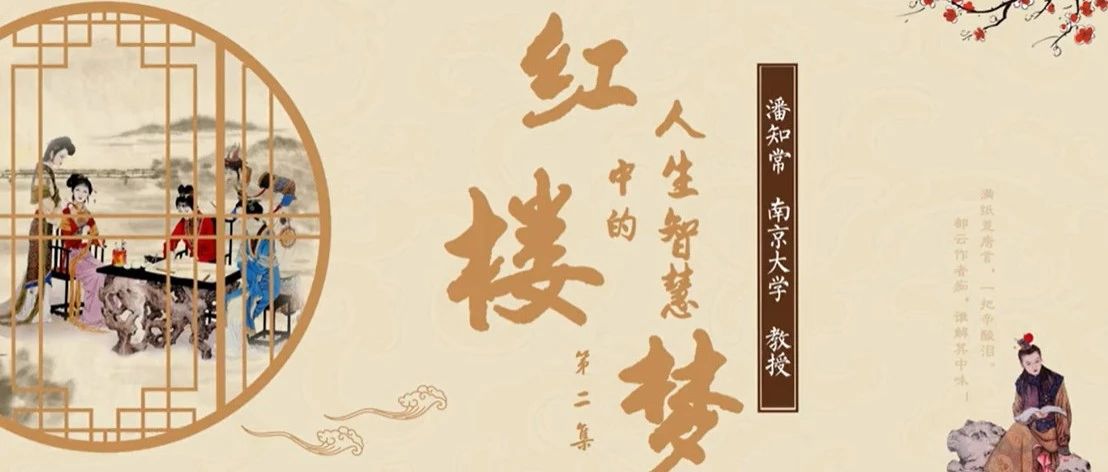 红楼梦
中的
人生智慧
第二集
潘知常 南京大学 教授
满纸荒唐言，一把辛酸泪。
都云作者痴，谁解其中味！